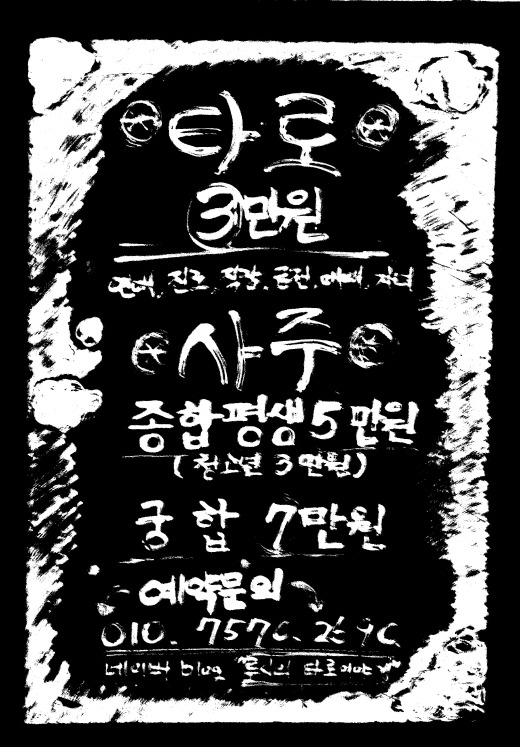 타로
3만원
연애, 진로, 직장, 금전, 매매, 자녀
사주
종합평생 5만원
(청소년 3만원)
궁합 7만원
예약문의
010.
네이버 타로이야기